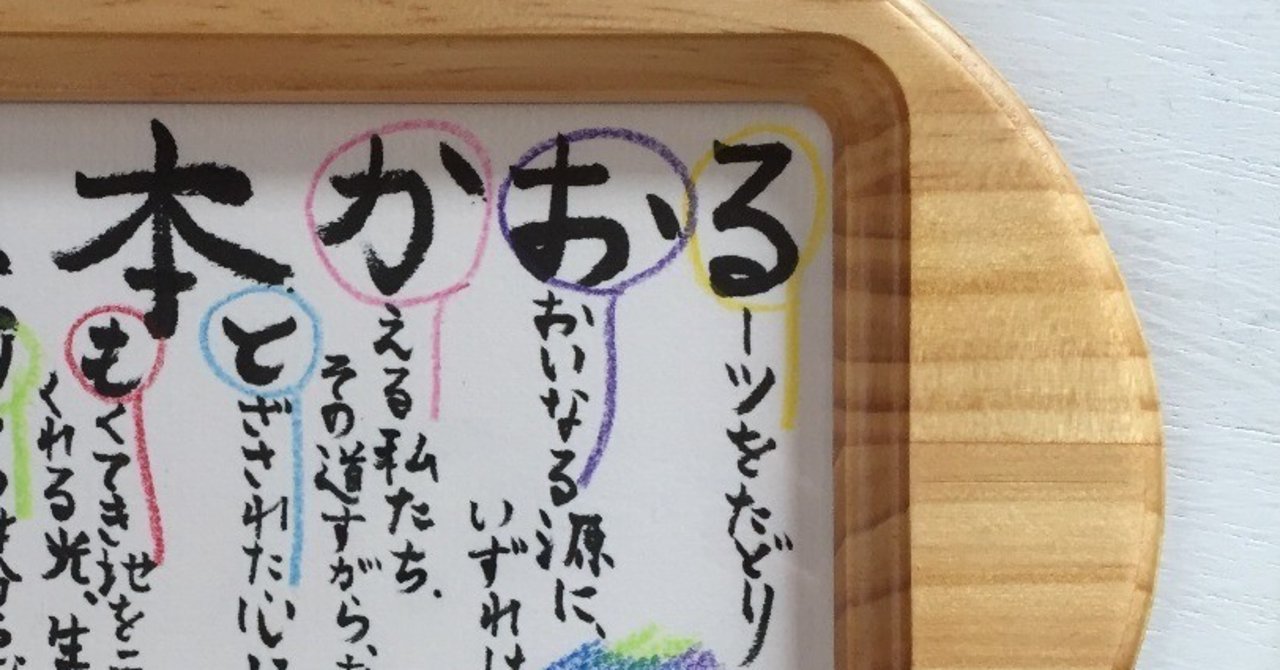 るーツをたどり
おおいなる源に、
いずれは
かえる私たち.
その道すがら、
本
とざされた心に
もくてき地を
くれる光、生